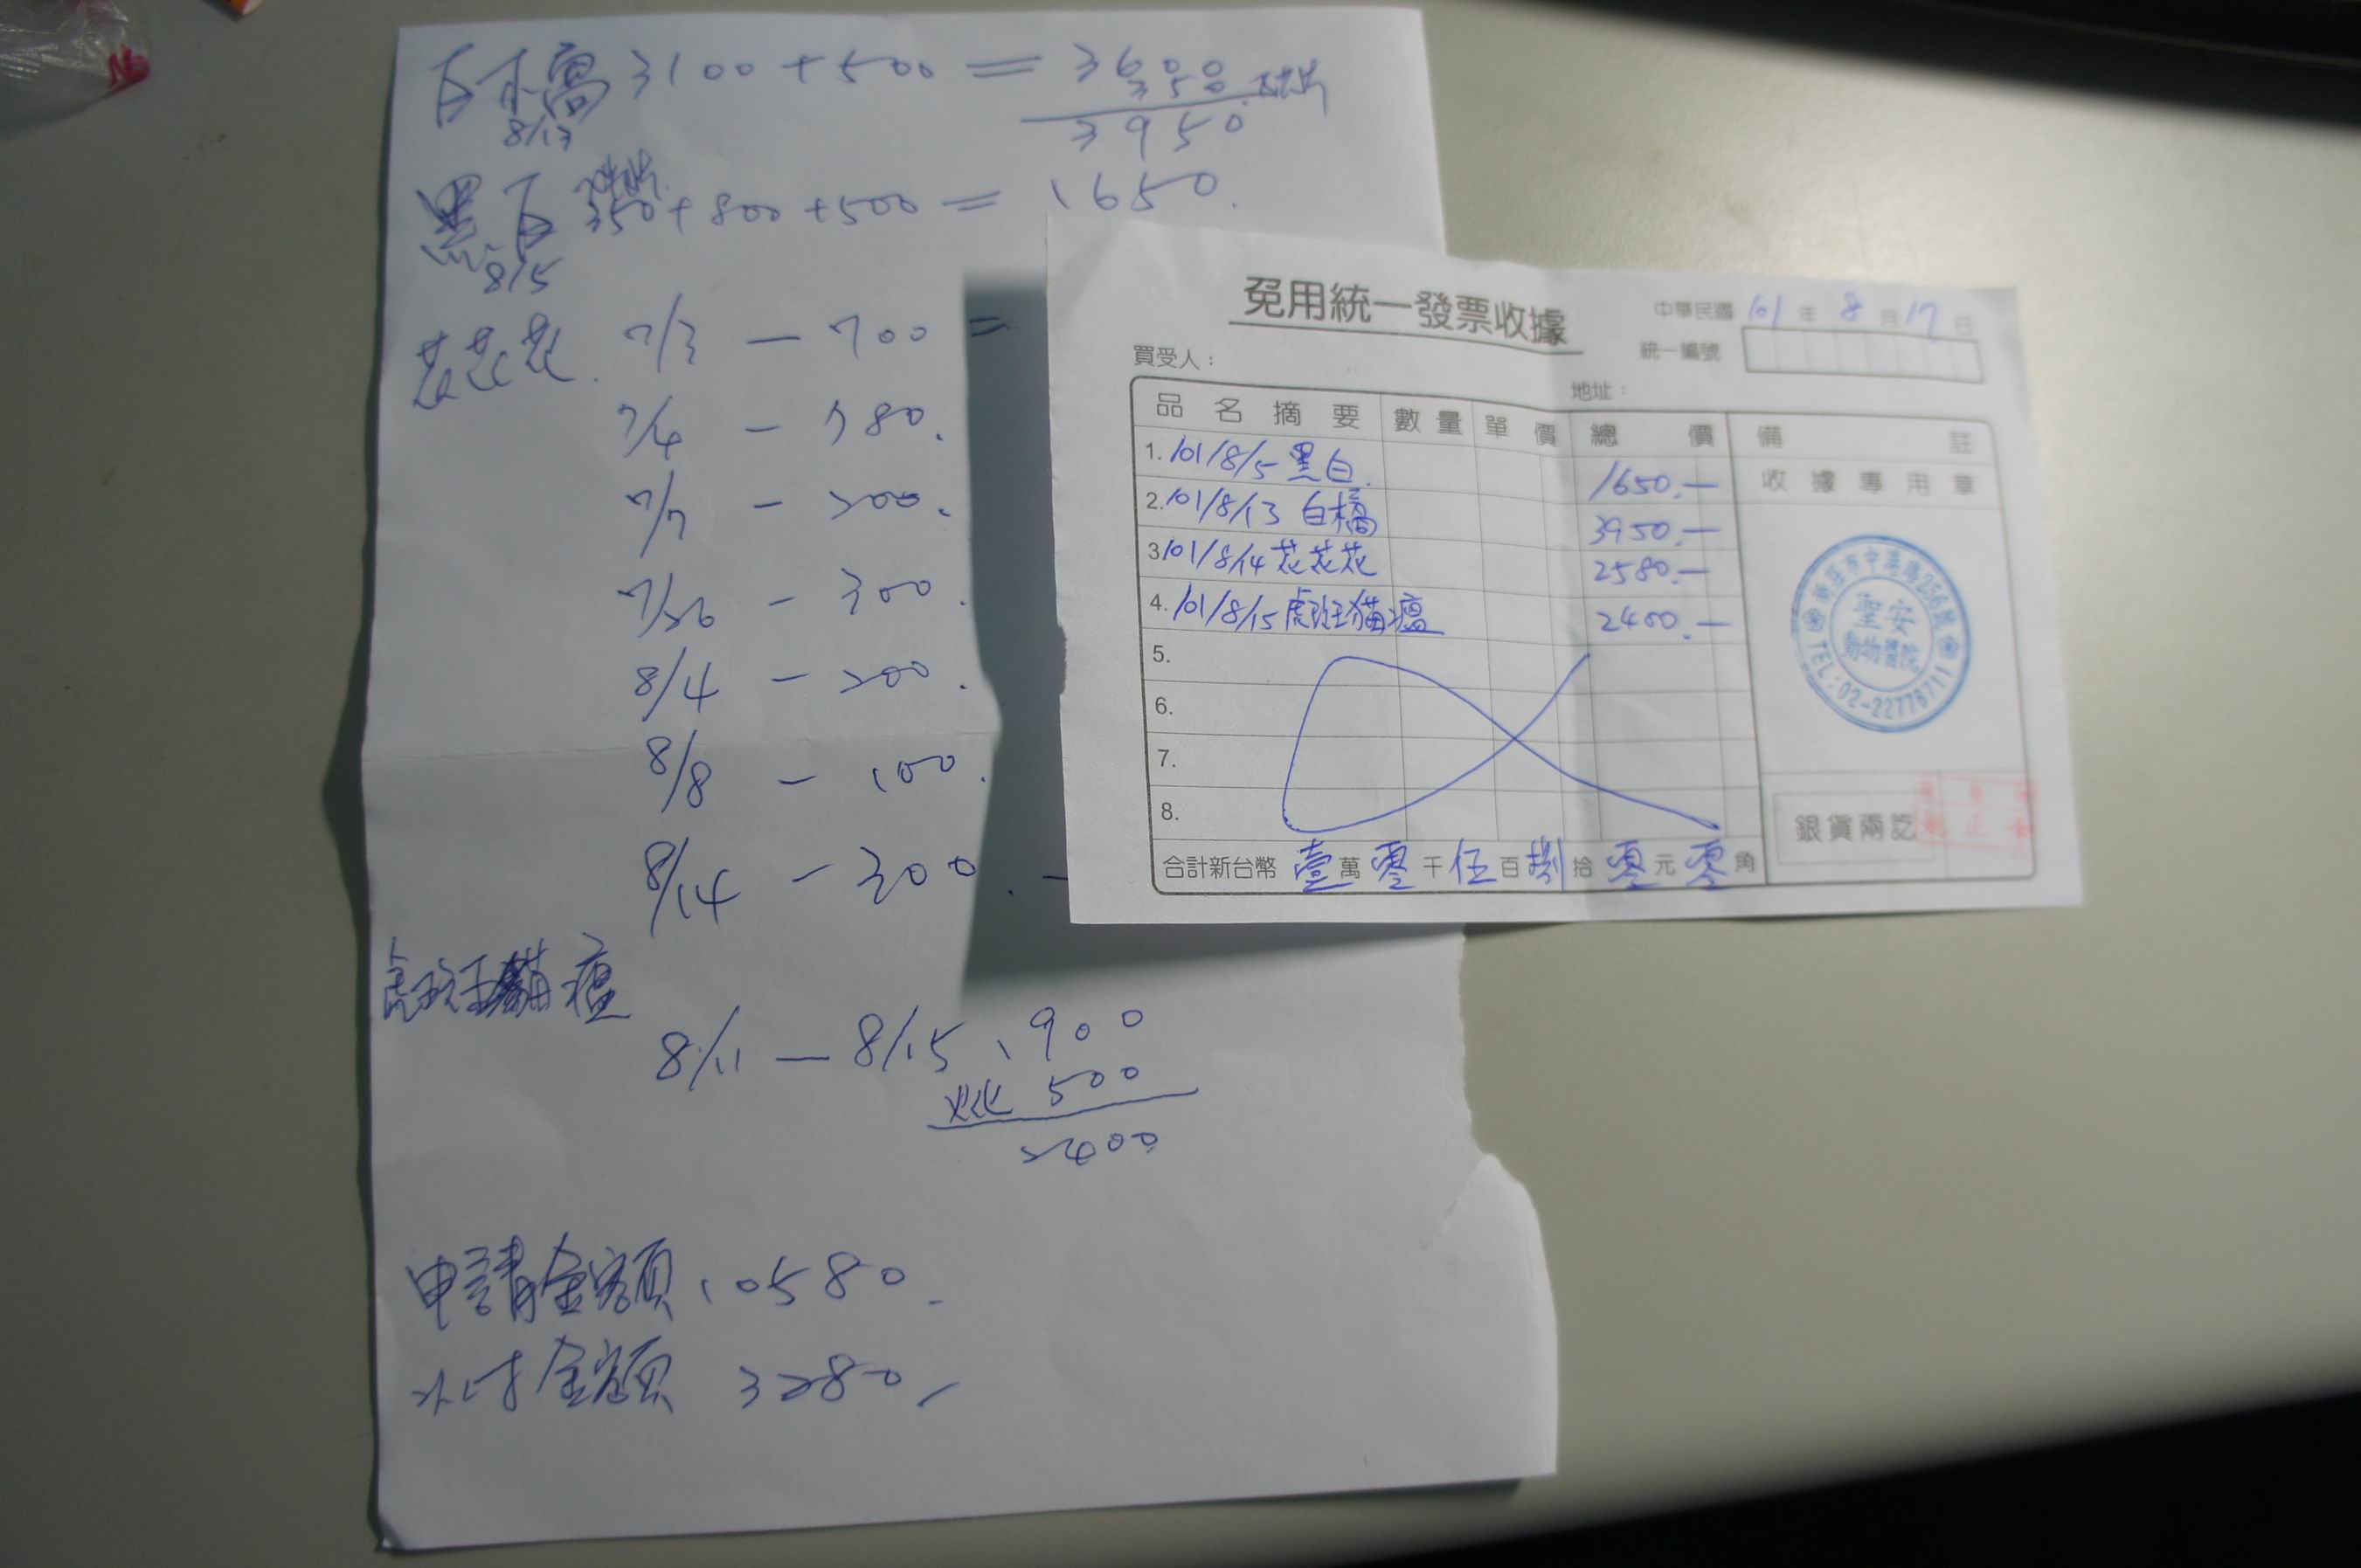 白橘 3100+500= 3600
8/13
350
3950
黑白 350+800+500= 1650.
8/5
花花花. 7/3 — 700 =
7/4 — 780.
7/7 — 200.
7/26 — 300.
8/4 — 200.
8/8 — 100.
8/14 — 300. —
虎班貓瘟
8/11 — 8/15 1900
火化 500
2400
申請金額 10580.
金額 3280.
免用統一發票收據
中華民國 101 年 8 月 17 日
統一編號
買受人：
地址：
品名摘要 數量 單價 總價 備註
1. 101/8/5 黑白. 1650.—
2. 101/8/13 白橘 3950.—
3 101/8/14 花花花 2580.—
4. 101/8/15 虎班貓瘟 2400.—
5.
6.
7.
8.
合計新台幣 壹萬零千伍百捌拾零元零角
收據專用章
聖安
動物醫院
TEL:02-22776711
銀貨兩訖